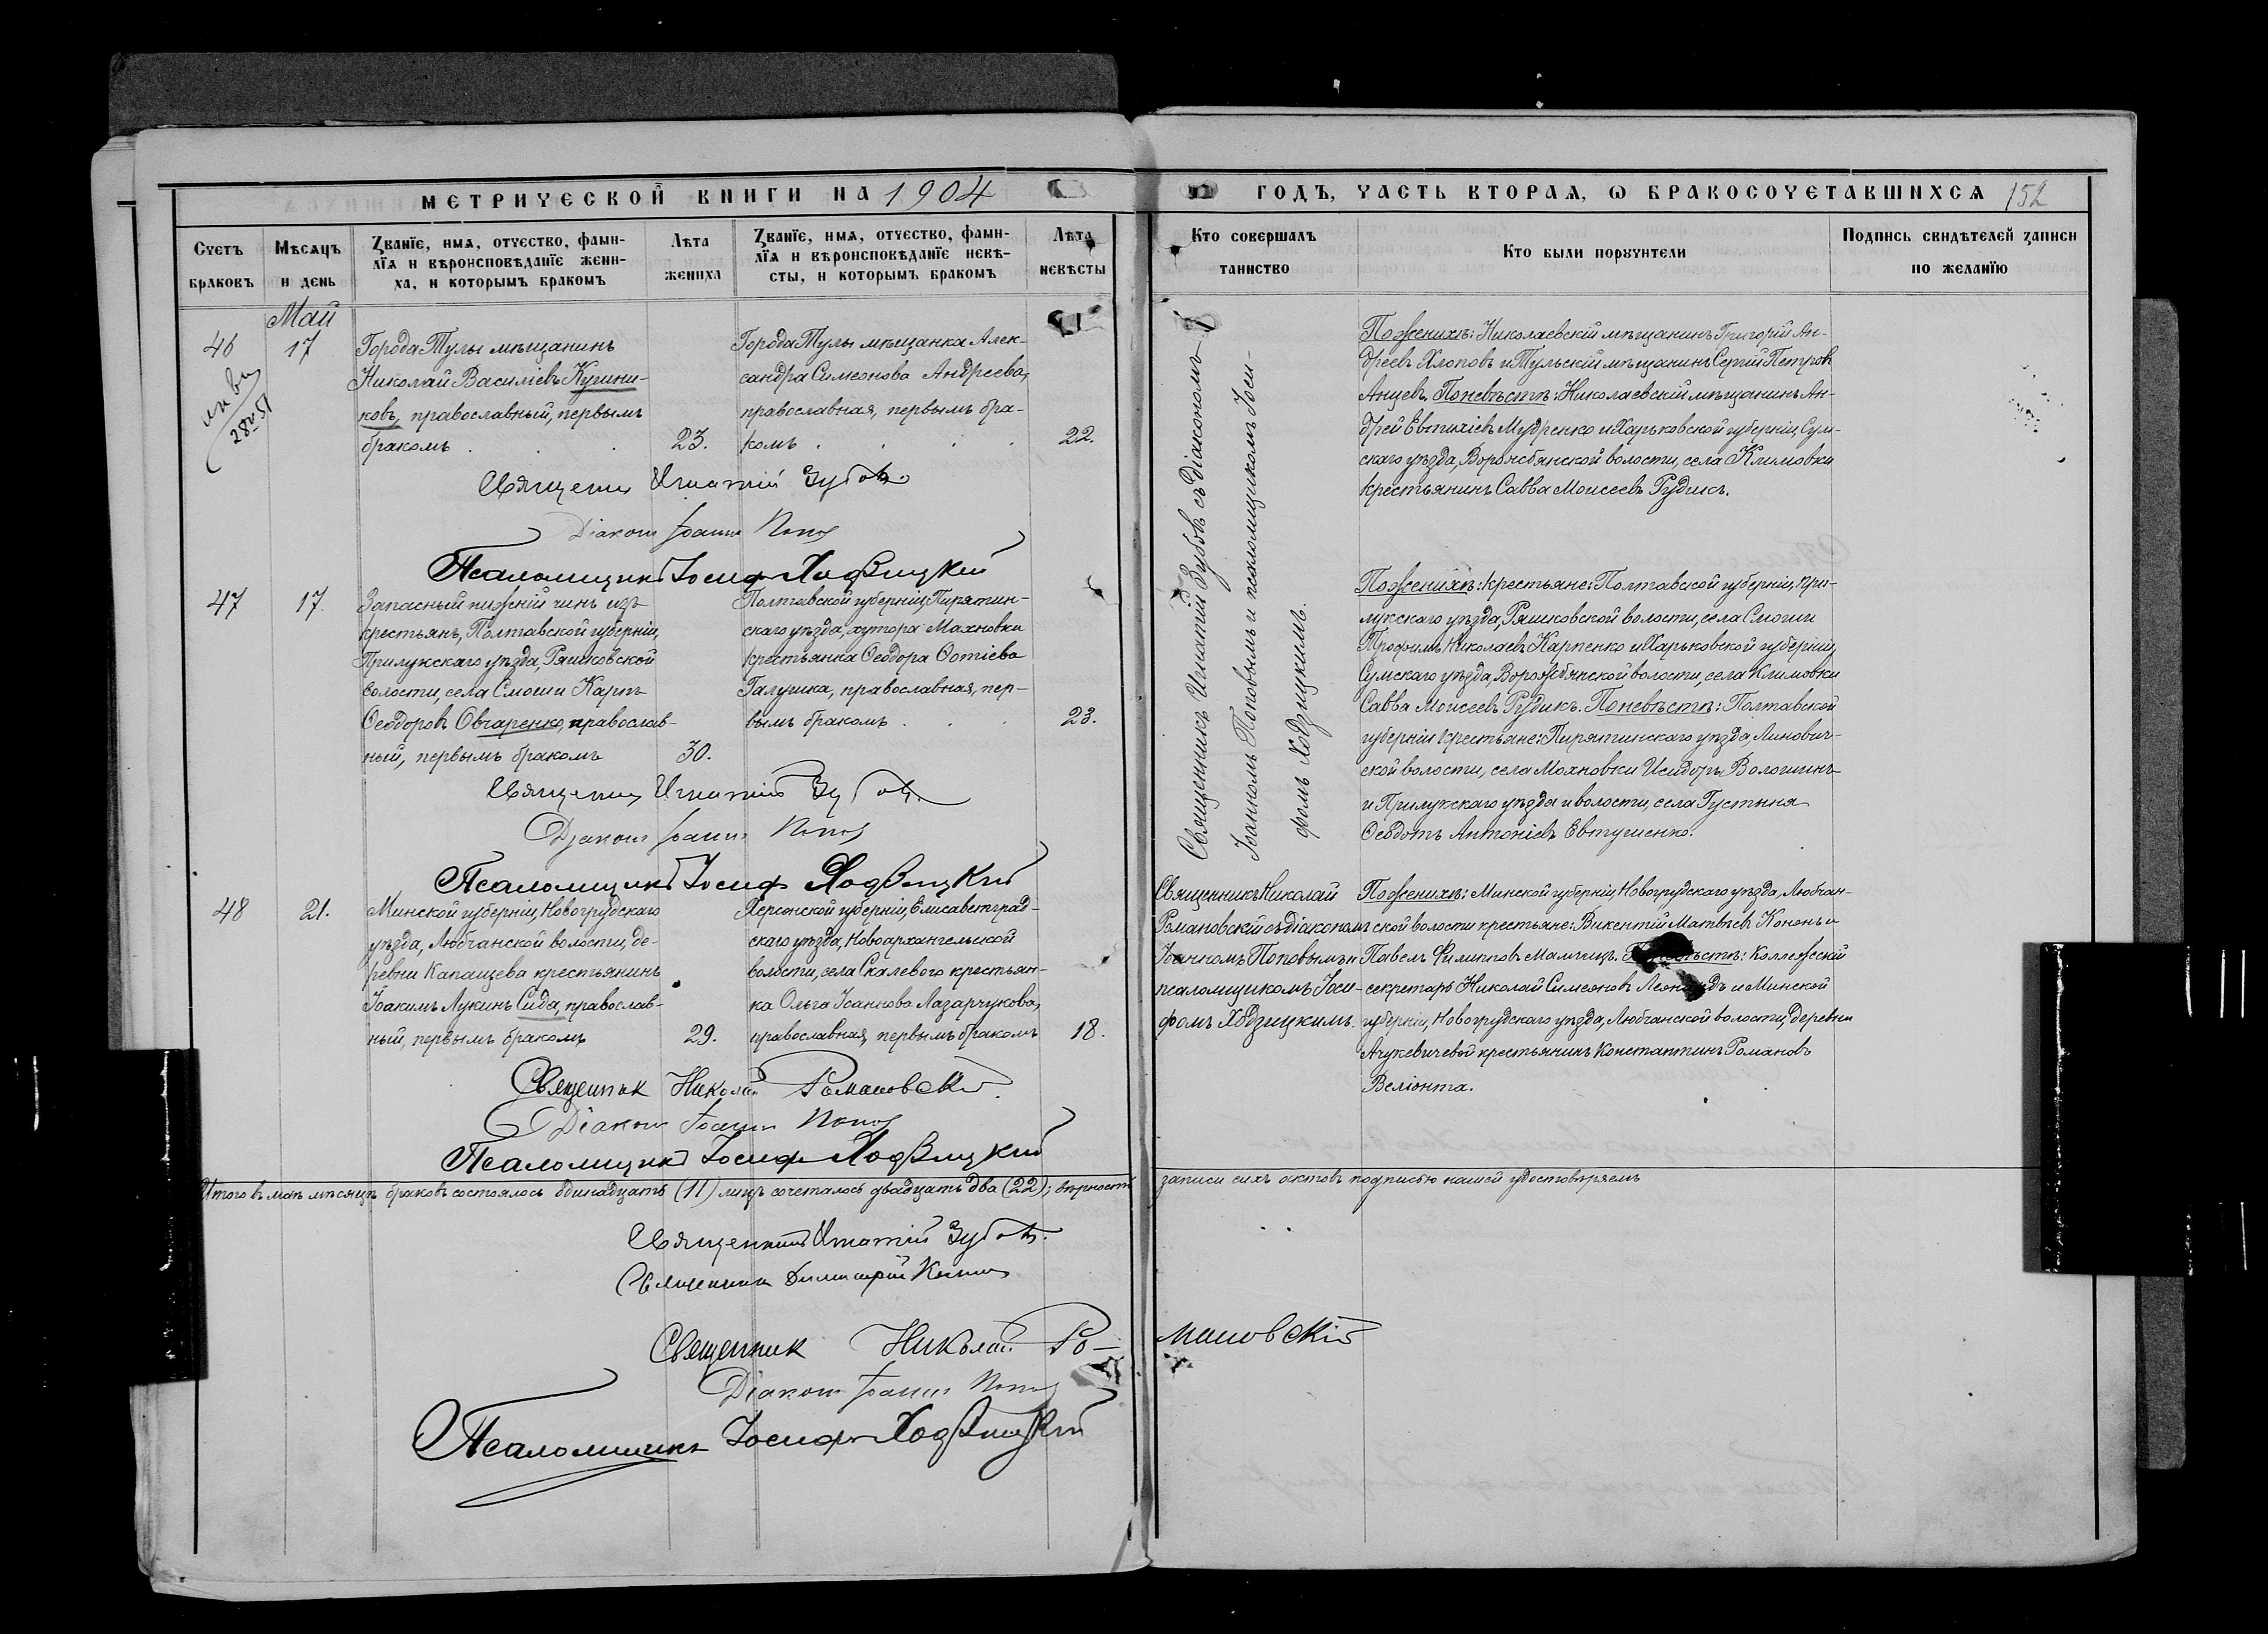 МЕТРИЧЕСКОЙ КНИГИ НА 1904
ГОДЪ, ЧАСТЬ ВТОРАЯ, Ѡ БРАКОСОЧЕТАВШИХСЯ 152
Счетъ браковъ
Мѣсяцъ и день
Званїе, имя, отчество, фами-
лїя и вѣроисповѣданїе жени-
ха, и которымъ бракомъ
Лѣта жениха
Званїе, имя, отчество, фами-
лїя и вѣроисповѣданїе невѣ-
сты, и которымъ бракомъ
Лѣта невѣсты
Кто совершалъ таинство
Кто были поручители
Подпись свидѣтелей записи по желанїю
Май
46
17
Города Тулы мѣщанинъ
Николай Василіевъ Кугини-
ковъ, православный, первымъ
бракомъ . . .
23.
Города Тулы мѣщанка Алек-
сандра Симеонова Андреева,
православная, первымъ бра-
комъ . . . .
22.
Священникъ Игнатій Зубовъ съ діакономъ
Іоанномъ Поповымъ и псаломщикомъ Іоси-
фомъ Ходзицкимъ.
По женихѣ: Николаевскій мѣщанинъ Григорій Ан-
дреевъ Хлоповъ и Тульскій мѣщанинъ Сергій Петровъ
Анцевъ. По невѣстѣ: Николаевскій мѣщанинъ Ан-
дрей Евтихіевъ Мудренко и Харьковской губерніи, Сум-
скаго уѣзда, Ворожбянской волости, села Климовки
крестьянинъ Савва Моисеевъ Рудикъ.
Священникъ Игнатій Зубовъ
Діаконъ Іоаннъ Поповъ
Псаломщикъ Іосифъ Ходзицкій
47
17.
Запасный нижній чинъ изъ
крестьянъ, Полтавской губерніи,
Прилукскаго уѣзда, Ряшковской
волости, села Смоши Карпъ
Ѳеодоровъ Овчаренко, православ-
ный, первымъ бракомъ
30.
Полтавской губерніи, Пирятин-
скаго уѣзда, хутора Махновки
крестьянка Ѳеодора Ѳотіева
Галушка, православная, пер-
вымъ бракомъ . . .
23.
По женихѣ: крестьяне: Полтавской губерніи, При-
лукскаго уѣзда, Ряшковской волости, села Смоши
Трофимъ Николаевъ Карпенко и Харьковской губерніи,
Сумскаго уѣзда, Ворожбянской волости, села Климовки
Савва Моисеевъ Рудикъ. По невѣстѣ: Полтавской
губерніи крестьяне: Пирятинскаго уѣзда, Линович-
ской волости, села Мохновки Исидоръ Волошинъ
и Прилукскаго уѣзда и волости, села Густыня
Ѳеодотъ Антоніевъ Евтушенко.
Священникъ Игнатій Зубовъ
Діаконъ Іоаннъ Поповъ
Псаломщикъ Іосифъ Ходзицкій
48
21.
Минской губерніи, Новогрудскаго
уѣзда, Любчанской волости, де-
ревни Капащева крестьянинъ
Іоакимъ Лукинъ Сида, православ-
ный, первымъ бракомъ
29.
Херсонской губерніи, Елисаветград-
скаго уѣзда, Новоархангельской
волости, села Скалевого крестьян-
ка Ольга Іоаннова Лазарчукова,
православная, первымъ бракомъ
18.
Священникъ Николай
Романовскій съ діакономъ
Іоанномъ Поповымъ и
псаломщикомъ Іоси-
фомъ Ходзицкимъ.
По женихѣ: Минской губерніи, Новогрудскаго уѣзда, Любчан-
ской волости крестьяне: Викентій Матвѣевъ Кононъ и
Павелъ Филипповъ Мамчицъ. По невѣстѣ: Коллежскій
секретарь Николай Симеоновъ и Минской
губерніи, Новогрудскаго уѣзда, Любчанской волости, деревни
Ачукевичевой крестьянинъ Константинъ Романовъ
Веліонта.
Священникъ Николай Романовскій
Діаконъ Іоаннъ Поповъ
Псаломщикъ Іосифъ Ходзицкій
Итого въ маѣ мѣсяцѣ браковъ состоялось одинадцать (11) лицъ сочеталось двадцать два (22); вѣрность записи сихъ актовъ подписью нашей удостовѣряемъ
Священникъ Игнатій Зубовъ.
Священникъ Димитрій
Священник Николай Романовскій
Діаконъ Іоаннъ Поповъ
Псаломщикъ Іосифъ Ходзицкій